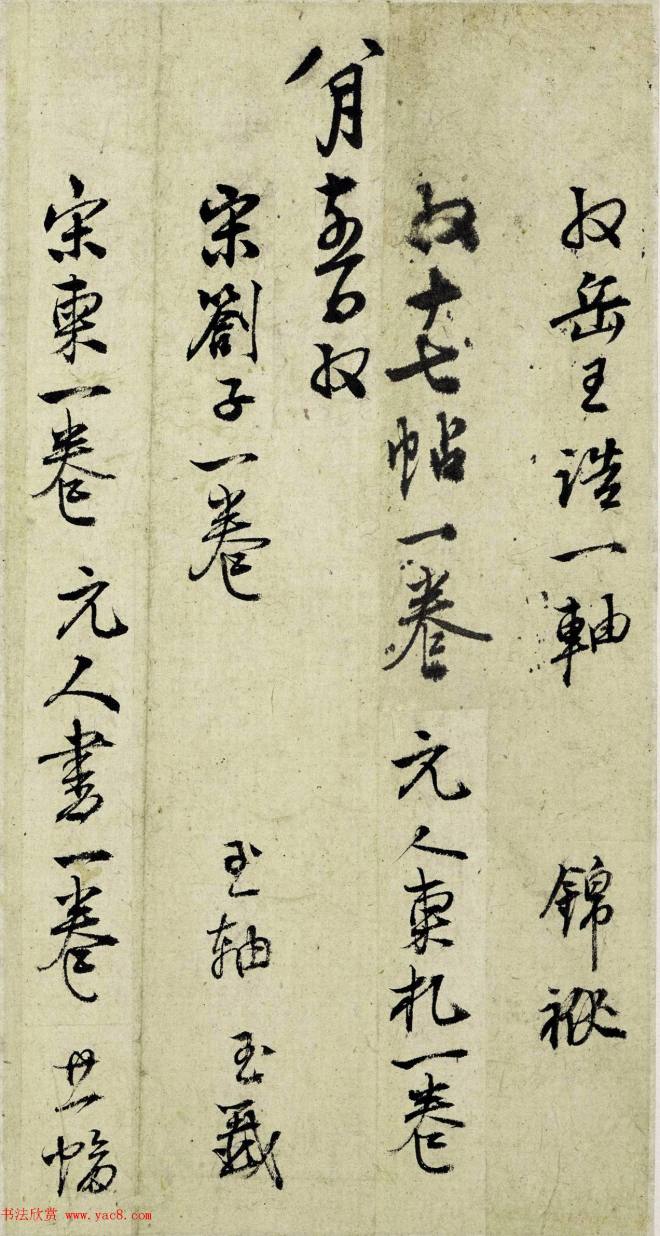 收岳王誥一軸 錦
收十七帖一卷 元人柬札一卷
八月 日收
宋劄子一卷 玉軸 玉籤
宋柬一卷 元人書一卷 廿一幅
书法欣赏 www.yac8.com